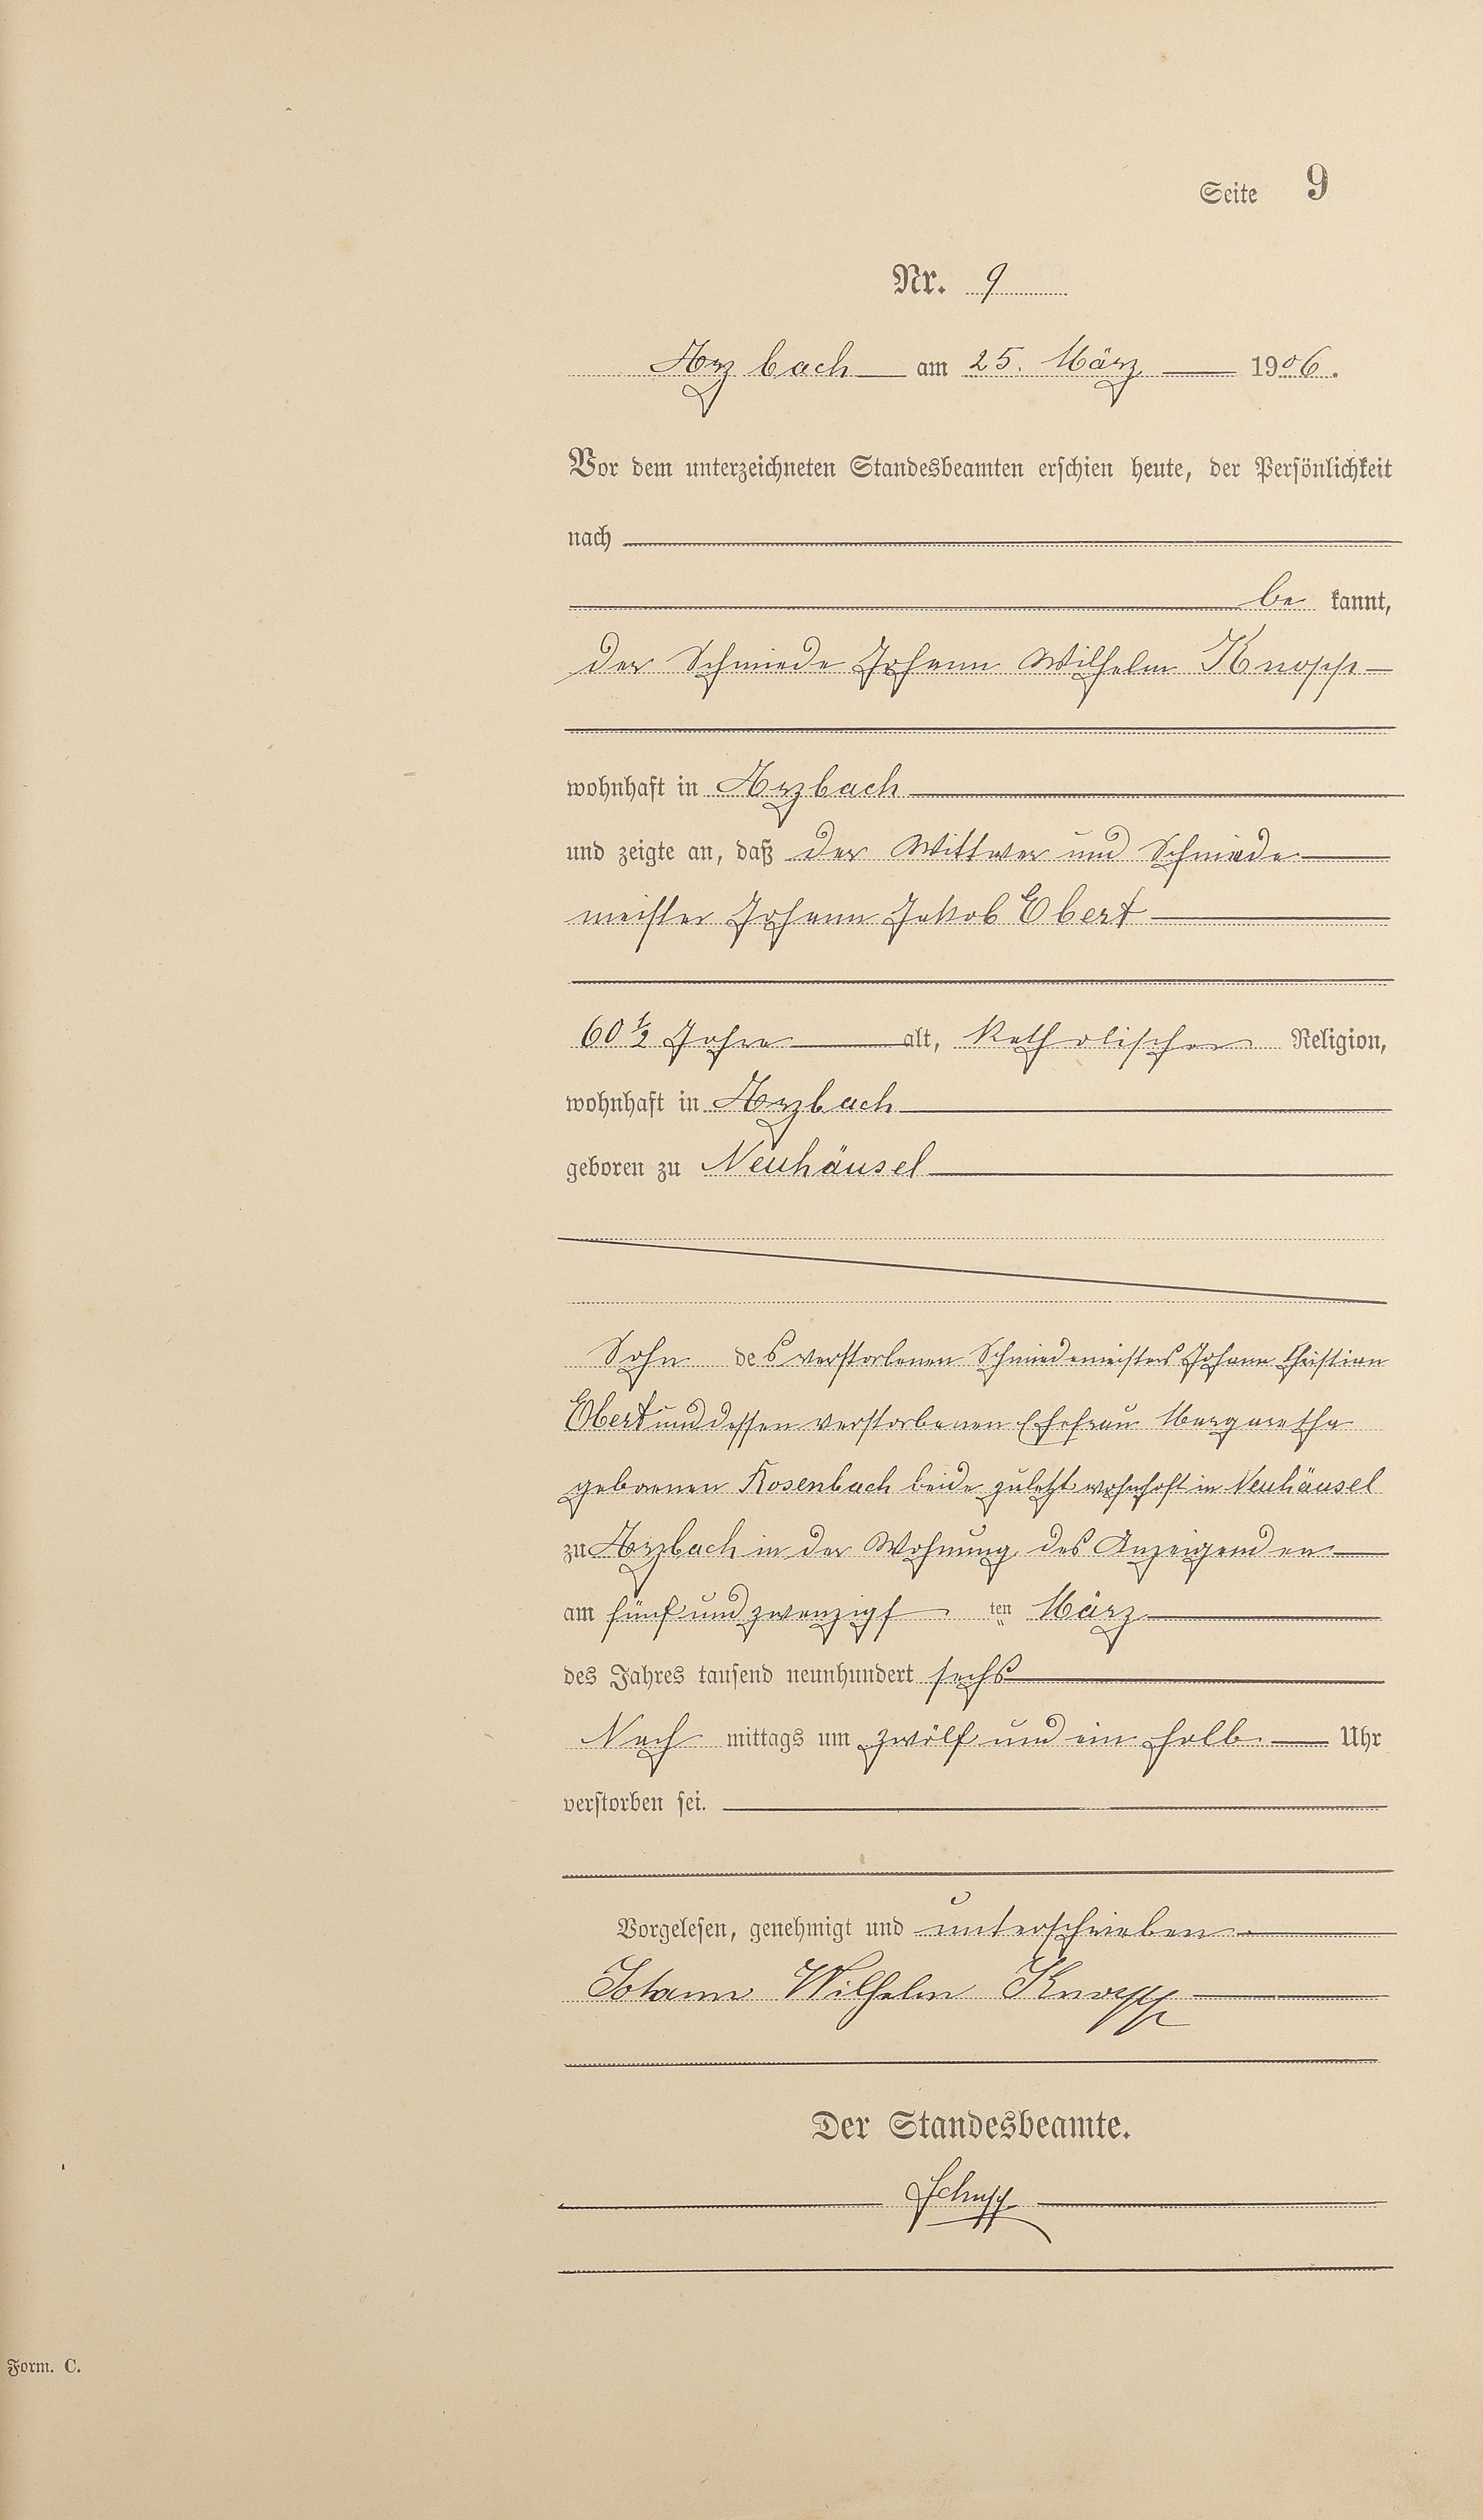 Seite 9
Nr. 9
Arzbach am 25. März 1906.
Vor dem unterzeichneten Standesbeamten erschien heute, der Persönlichkeit
nach
be kannt,
der Schmiede Johann Wilhelm Knopp
wohnhaft in Arzbach
und zeigte an, daß der Wittwer und Schmiede
meister Johann Jakob Ebert
60 1/2 Jahre alt, katholischer Religion,
wohnhaft in Arzbach
geboren zu Neuhäusel
Sohn des verstorbenen Schmiedemeisters Johann Christian
Ebert und dessen verstorbenen Ehefrau Margaretha
geborenen Rosenbach beide zuletzt wohnhaft in Neuhäusel
zu Arzbach in der Wohnung des Anzeigenden
am fünf und zwanzigsten März
des Jahres tausend neunhundert sechs
Nach mittags um zwölf und ein halb Uhr
verstorben sei.
Vorgelesen, genehmigt und unterschrieben
Johann Wilhelm Knopp
Der Standesbeamte.
Form. C.